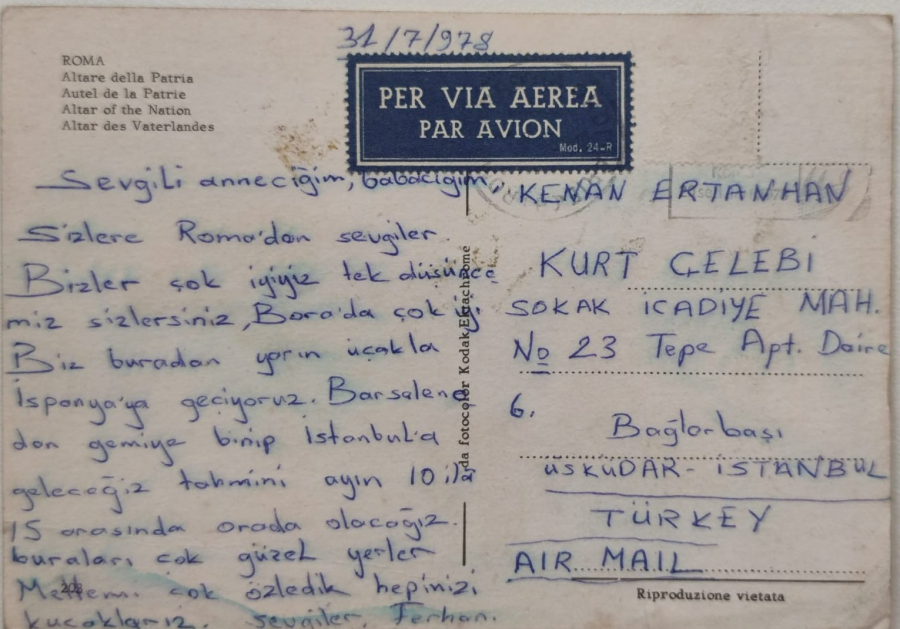 31/7/978
ROMA
Altare della Patria
Autel de la Patrie
Altar of the Nation
Altar des Vaterlandes
PER VIA AEREA
PAR AVION
Mod. 24-R
Sevgili anneciğim, babacığım,
Sizlere Roma'dan sevgiler
Bizler çok iyiyiz tek düşünce
miz sizlersiniz, Bora'da çok iyi
Biz buradan yarın uçakla
İsponya'ya geçiyoruz. Barselona
dan gemiye binip İstanbul'a
geleceğiz tahmini ayın 10 ila
15 arasında orada olacağız.
buraları çok güzel yerler
çok özledik hepinizi
kucaklarız. sevgiler, Ferhan.
203
da fotocolor Kodak Ektachrome
KENAN ERTANHAN
KURT ÇELEBİ
SOKAK İCADİYE MAH.
No 23 Tepe Apt. Daire
6.
Bağlarbaşı
ÜSKÜDAR - İSTANBUL
TÜRKEY
AIR MAIL
Riproduzione vietata